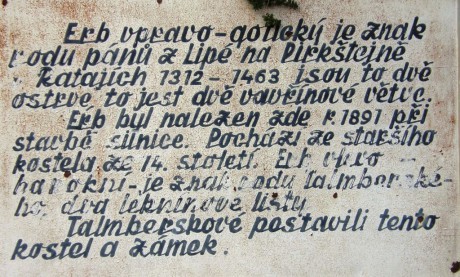 Erb vpravo-gotický je znak
rodu pánů z Lipé na Pirkštejně
v Ratajích 1312 - 1463 jsou to dvě
ostrve, to jest dvě vavřínové větve.
Erb byl nalezen zde r. 1891 při
stavbě silnice. Pochází ze staršího
kostela ze 14. století. Erb vlevo
barokní - je znak rodu Talmberské-
ho, dva leknínové listy
Talmberkové postavili tento
kostel a zámek.